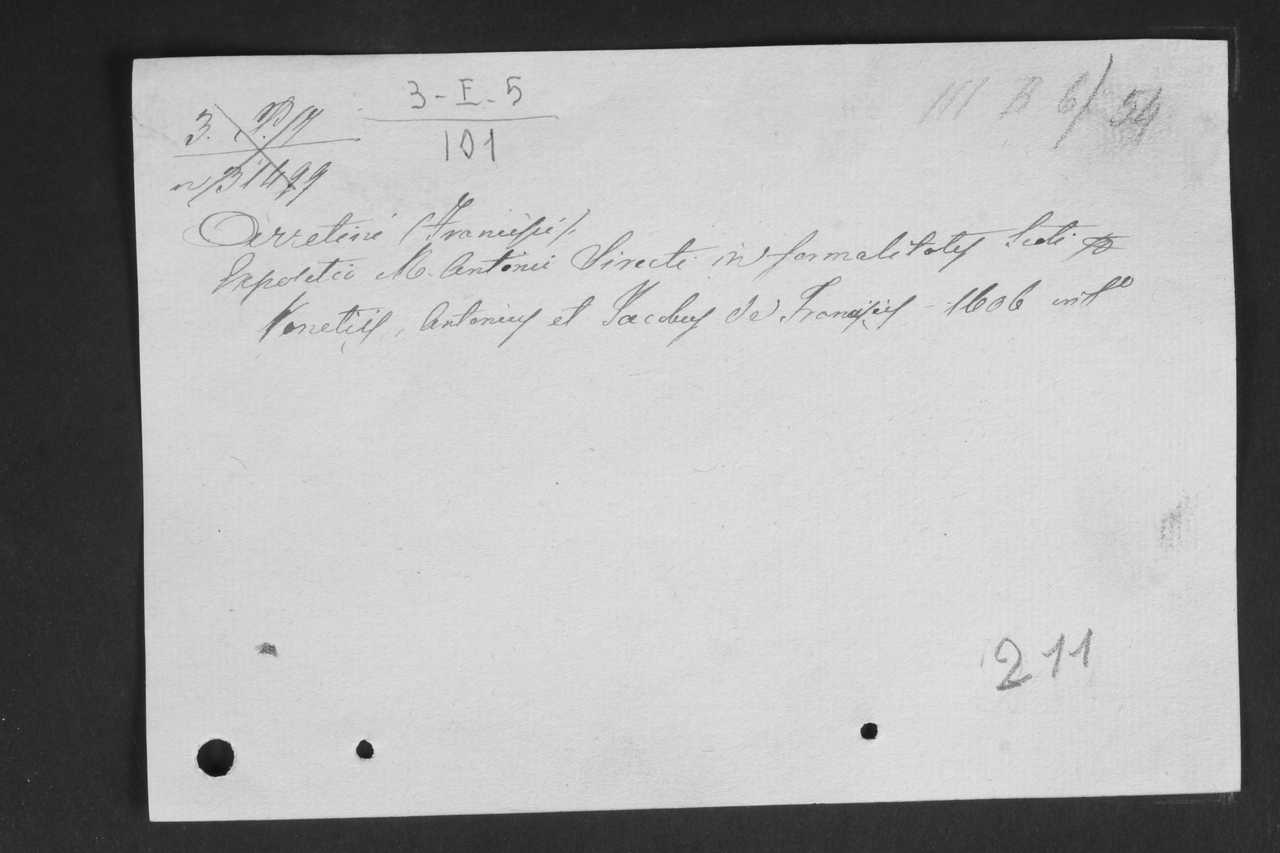 3-I-5
101
III B 6/54
Arretini (Francisci)
Expositio M. Antonii Sirecti in formalitates Scoti
Venetiis, Antonius et Jacobus de Franciscis - 1606 in 4º
211